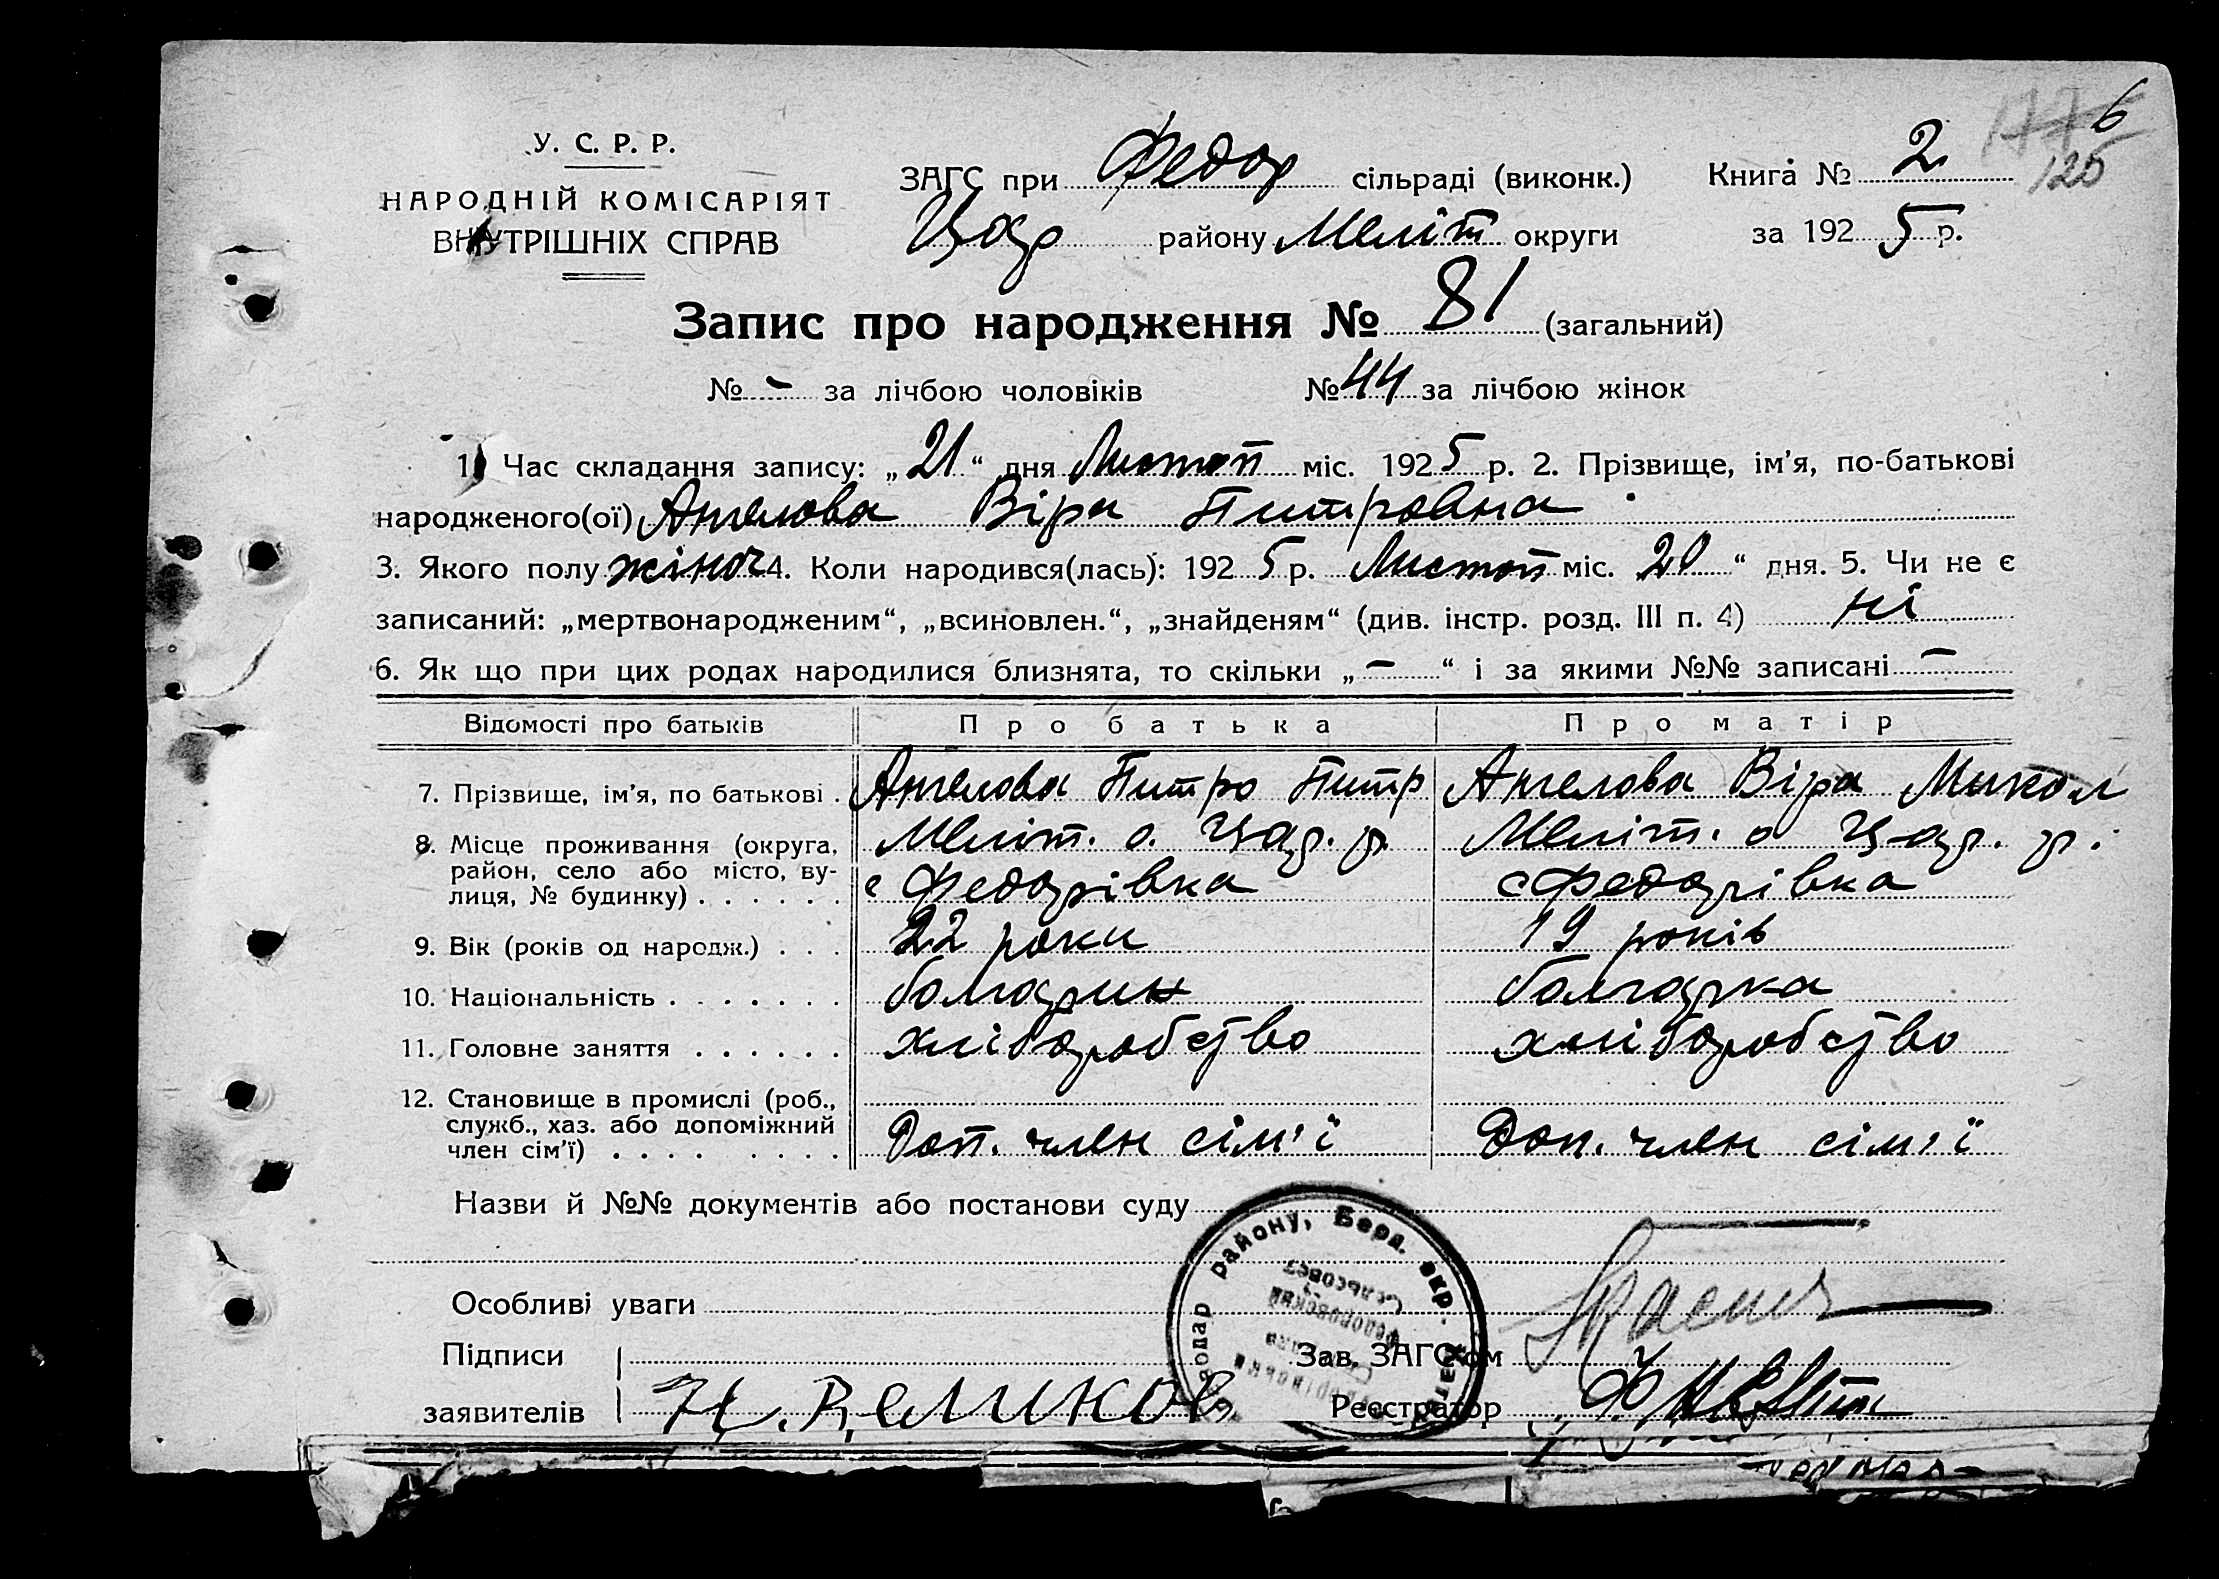 6
У. С. Р. Р.
НАРОДНІЙ КОМІСАРІЯТ
ВНУТРІШНІХ СПРАВ
ЗАГС при Федор сільраді (виконк.) Книга № 2 125
Цар району Меліт округи за 1925 р.
Запис про народження № 81 (загальний)
№ - за лічбою чоловіків № 44 за лічбою жінок
1. Час складання запису: „21“ дня Листоп міс. 1925 р. 2. Прізвище, ім’я, по-батькові
народженого(ої) Ангелова Віра Питровна
3. Якого полу жіноч 4. Коли народився(лась): 1925 р. Листоп міс. 20“ дня. 5. Чи не є
записаний: „мертвонародженим“, „всиновлен.“, „знайденям“ (див. інстр. розд. III п. 4) ні
6. Як що при цих родах народилися близнята, то скільки „-“ і за якими №№ записані -
Відомості про батьків Про батька Про матір
7. Прізвище, ім’я, по батькові . Ангелова Питро Питр Ангелова Віра Микол
8. Місце проживання (округа, Меліт. о. Цар. р. Меліт. о Цар. р.
район, село або місто, ву- с Федорівка с Федорівка
лиця, № будинку) . . . . . .
9. Вік (років од народж.) . . . 22 роки 19 років
10. Національність . . . . . . . болгарин болгарка
11. Головне заняття . . . . . . хліборобство хліборобство
12. Становище в промислі (роб.,
служб., хаз. або допоміжний
член сім’ї) . . . . . . . . Доп. член сім'ї Доп. член сім'ї
Назви й №№ документів або постанови суду
району, Берд. окр.
Федоровский
Сельсовет
Особливі уваги
Підписи Зав. ЗАГС'ом
заявителів Н. Великов Реєстратор